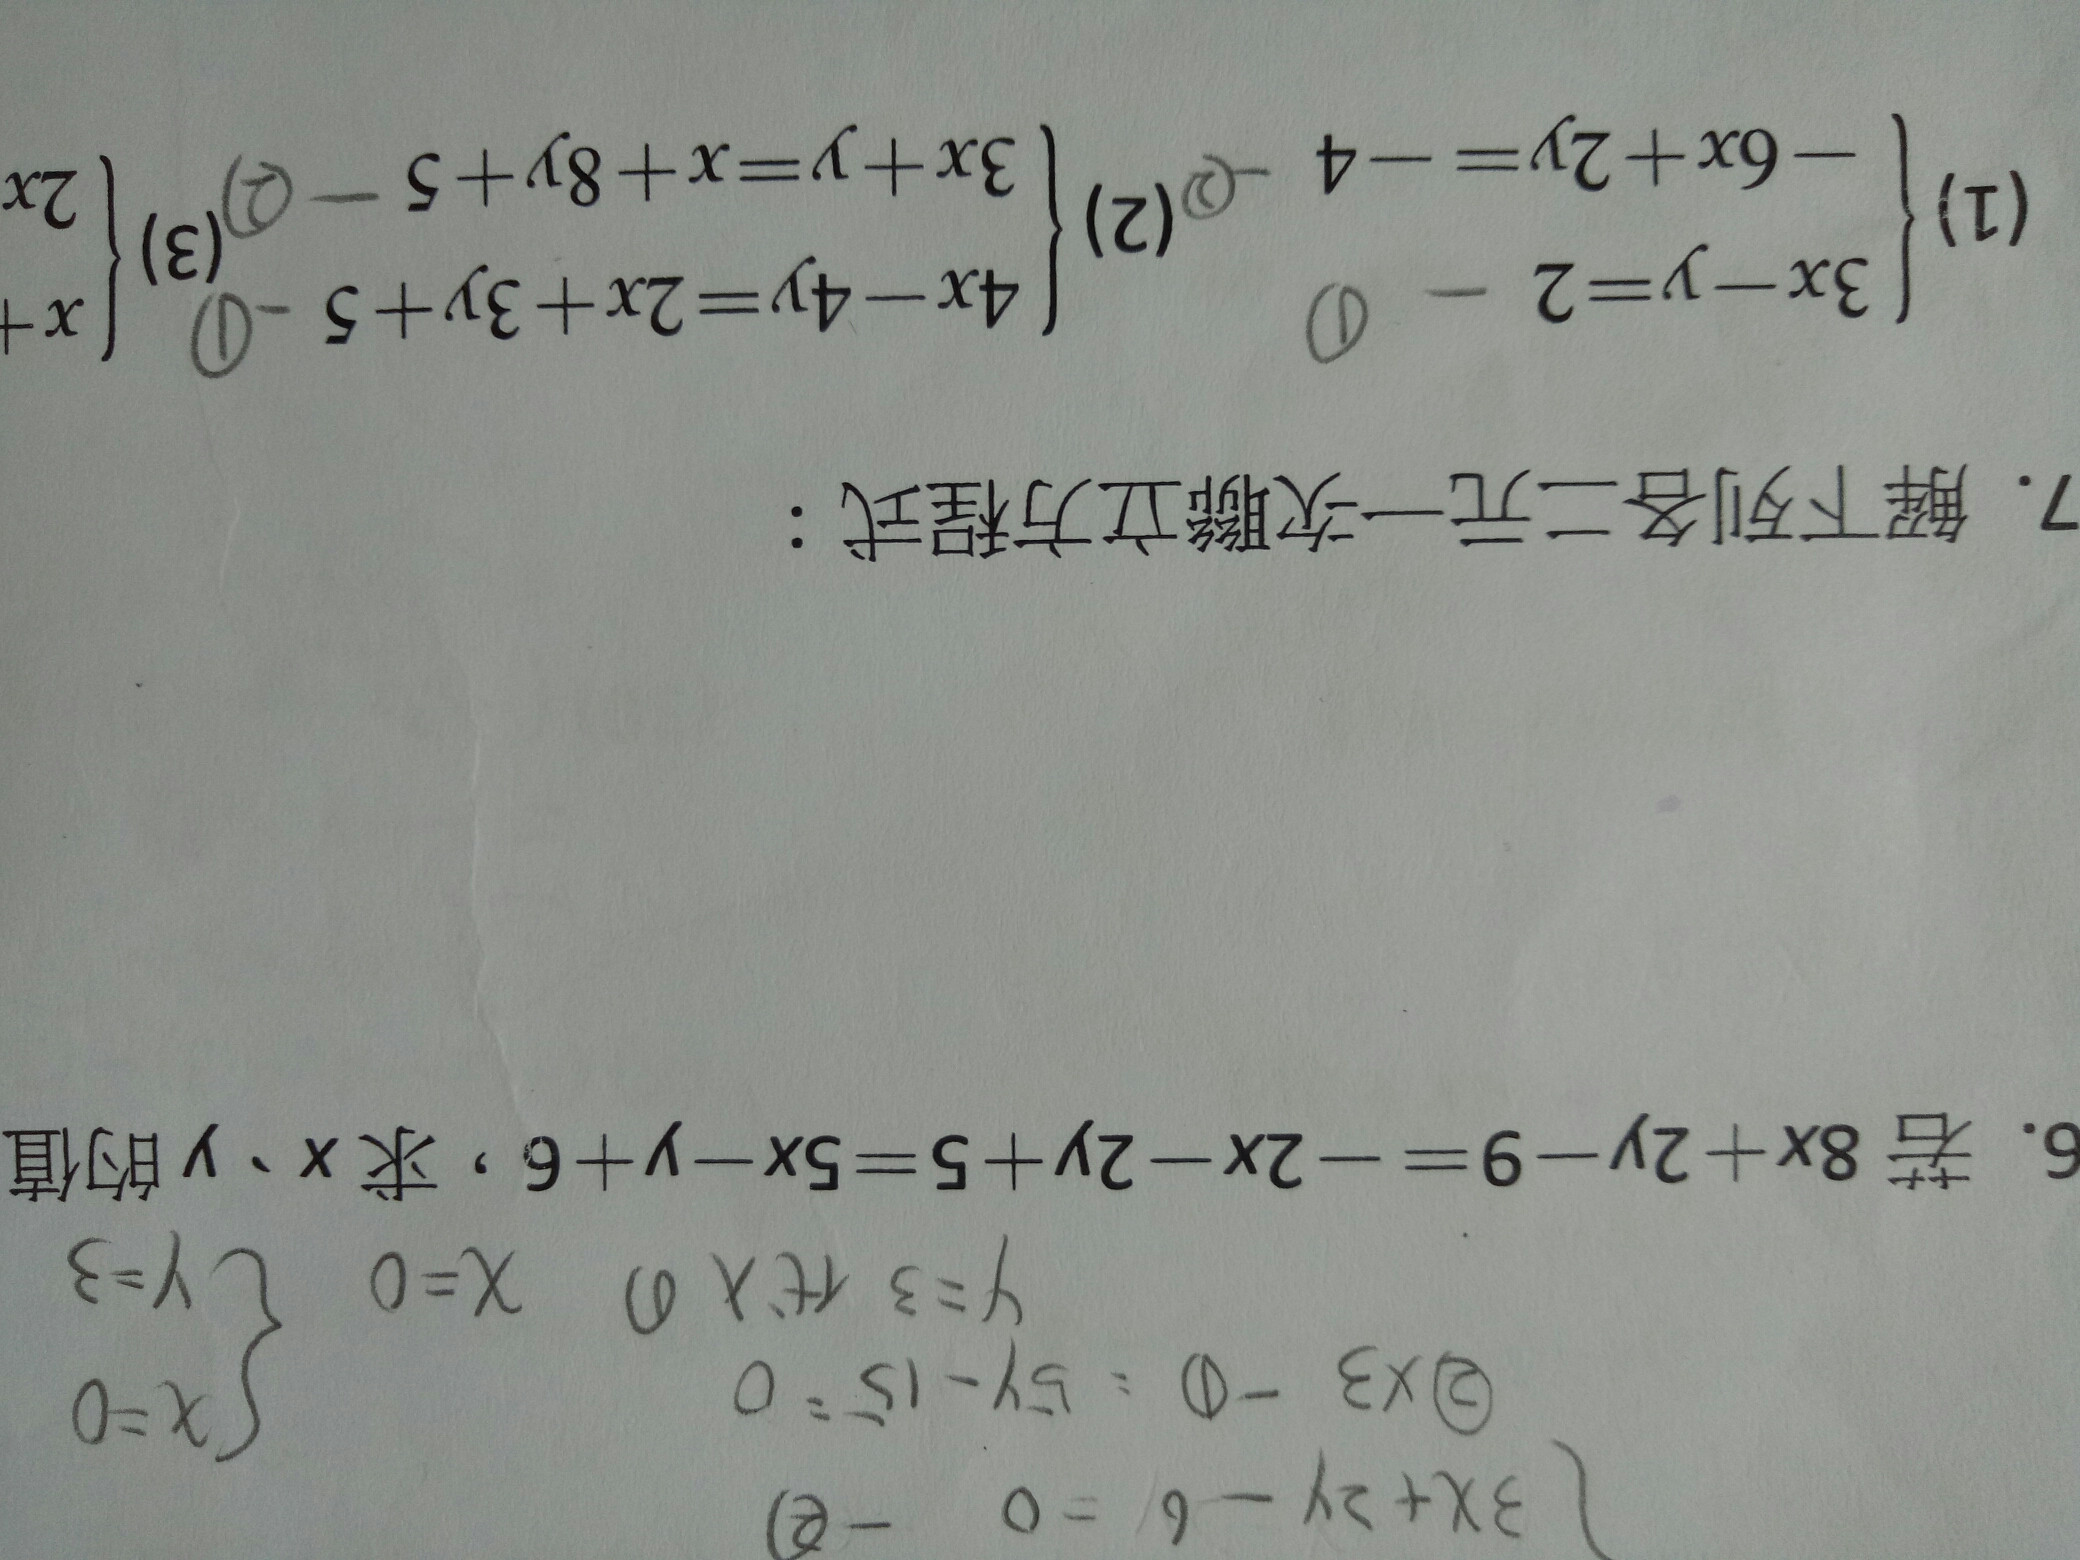 3x+2y-6=0 -②
②×3 -① = 5y-15=0
y=3 代入① x=0 { x=0
y=3
6. 若 8x+2y-9=-2x-2y+5=5x-y+6,求 x、y 的值
7. 解下列各二元一次聯立方程式:
(1) { 3x-y=2 -①
-6x+2y=-4 -②
(2) { 4x-4y=2x+3y+5 -①
3x+y=x+8y+5 -②
(3) { x+
2x